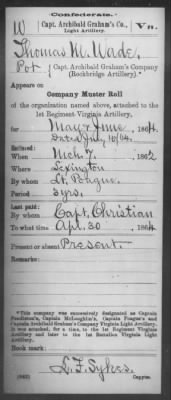 Confederate.
W | Capt. Archibald Graham's Co., Light Artillery. | Va.
Thomas M. Wade,
Pvt { Capt. Archibald Graham's Company
(Rockbridge Artillery).*
Appears on
Company Muster Roll
of the organization named above, attached to the
1st Regiment Virginia Artillery,
for May & June, 1864.
Dated July 10/64.
Enlisted:
When Mch. 7, 1862
Where Lexington
By whom Lt. Poague
Period 3 yrs.
Last paid:
By whom Capt. Christian
To what time Apl. 30 1864
Present or absent Present
Remarks:
*This company was successively designated as Captain
Pendleton's, Captain McLaughlin's, Captain Poague's and
Captain Archibald Graham's Company Virginia Light Artillery.
It was attached, for a time, to the 1st Regiment Virginia
Artillery and later to the 1st Battalion Virginia Light
Artillery.
Book mark:
L. T. Sykes.
(642) Copyist.